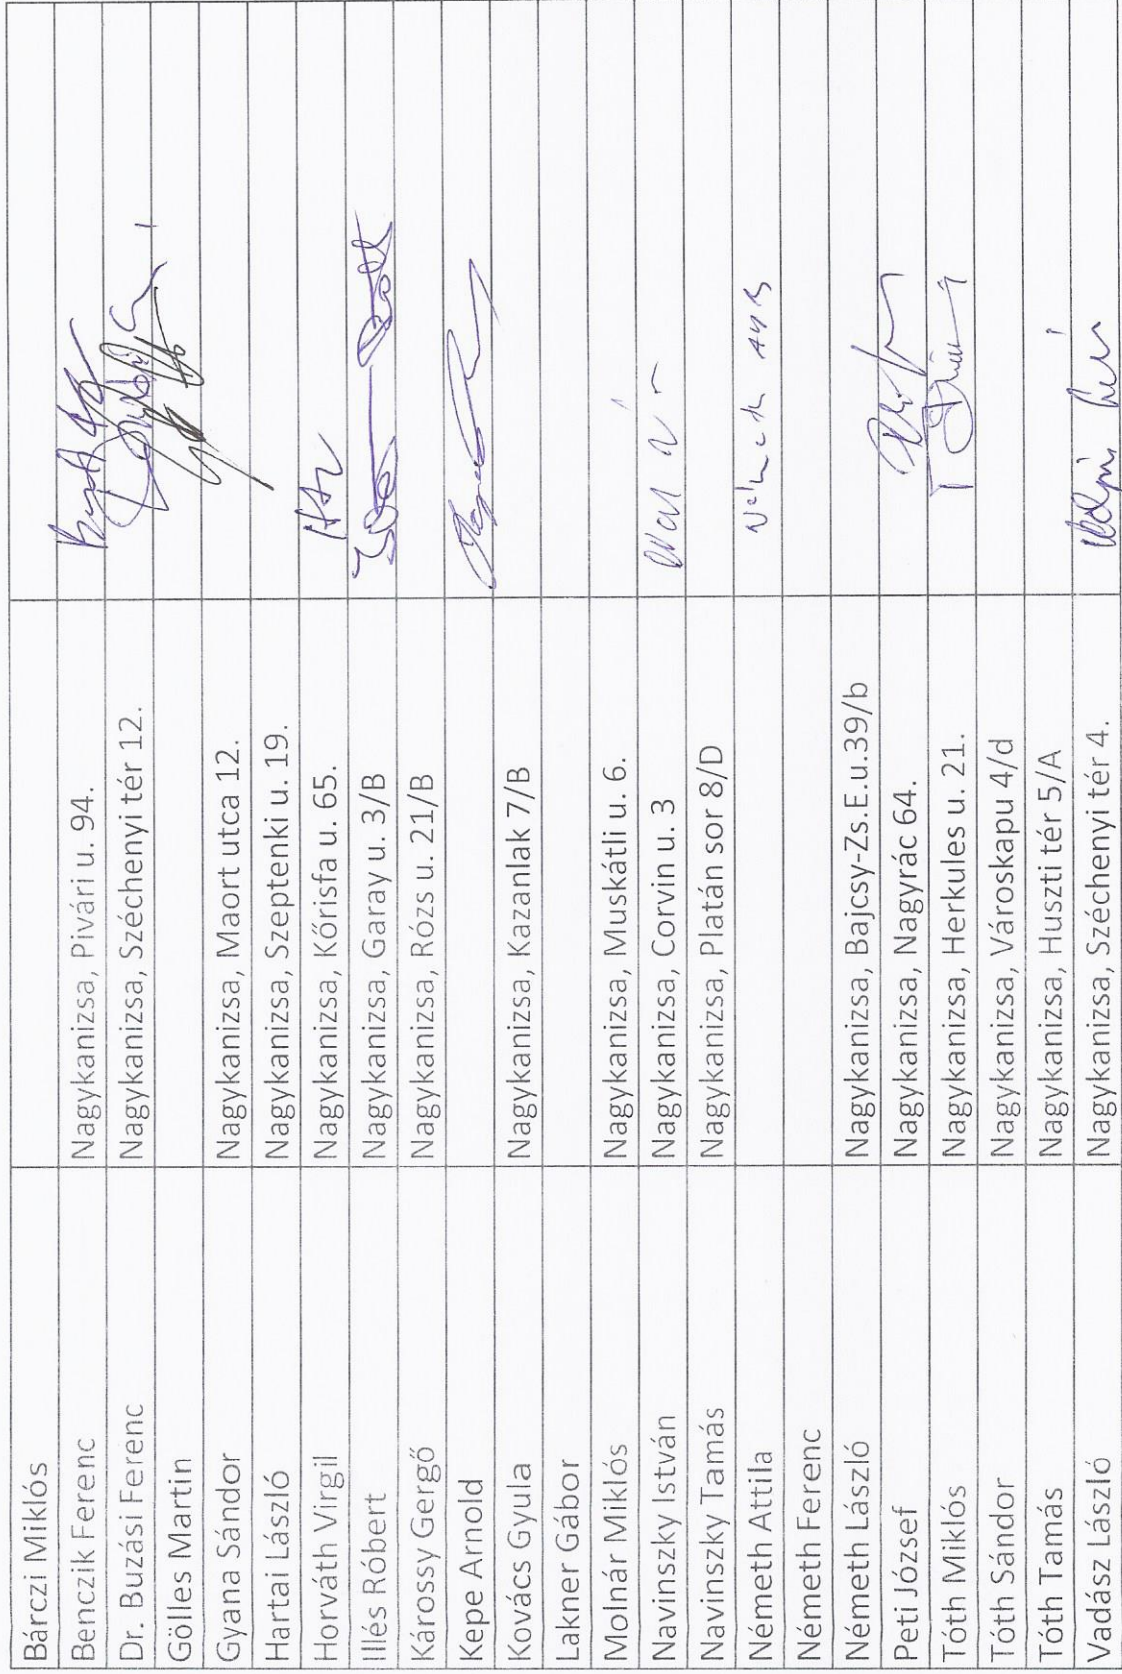 Bárczi Miklós
Benczik Ferenc Nagykanizsa, Pivári u. 94.
Dr. Buzási Ferenc Nagykanizsa, Széchenyi tér 12.
Gölles Martin
Gyana Sándor Nagykanizsa, Maort utca 12.
Hartai László Nagykanizsa, Szeptenki u. 19.
Horváth Virgil Nagykanizsa, Kőrisfa u. 65.
Illés Róbert Nagykanizsa, Garay u. 3/B
Károssy Gergő Nagykanizsa, Rózs u. 21/B
Kepe Arnold
Kovács Gyula Nagykanizsa, Kazanlak 7/B
Lakner Gábor
Molnár Miklós Nagykanizsa, Muskátli u. 6.
Navinszky István Nagykanizsa, Corvin u. 3
Navinszky Tamás Nagykanizsa, Platán sor 8/D
Németh Attila
Németh Ferenc
Németh László Nagykanizsa, Bajcsy-Zs.E.u.39/b
Peti József Nagykanizsa, Nagyrác 64.
Tóth Miklós Nagykanizsa, Herkules u. 21.
Tóth Sándor Nagykanizsa, Városkapu 4/d
Tóth Tamás Nagykanizsa, Huszti tér 5/A
Vadász László Nagykanizsa, Széchenyi tér 4.